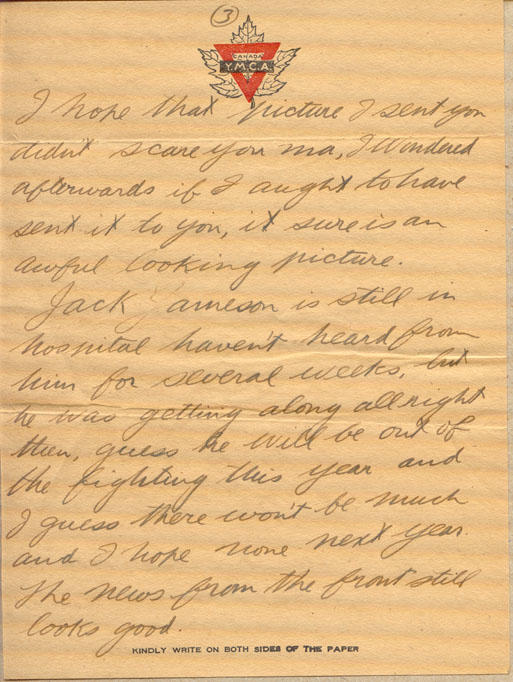 3
CANADA
Y.M.C.A.
I hope that picture I sent you
didn't scare you ma, I wondered
afterwards if I aught to have
sent it to you, it sure is an
awful looking picture.
Jack Jameson is still in
hospital haven't heard from
him for several weeks, but
he was getting along allright
then, guess he will be out of
the fighting this year and
I guess there won't be much
and I hope none next year.
The news from the front still
looks good.
KINDLY WRITE ON BOTH SIDES OF THE PAPER